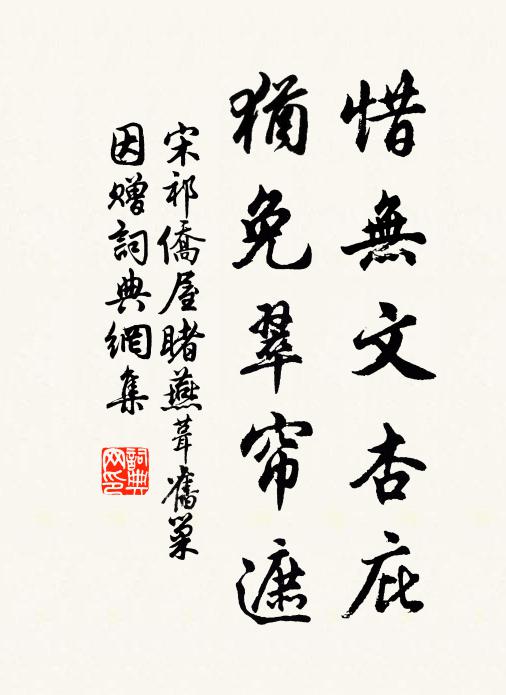 惜無文杏庇
猶免翠帘遮
宋祁僑屋睹燕葺舊巢
因贈詞典網集
詞典网印